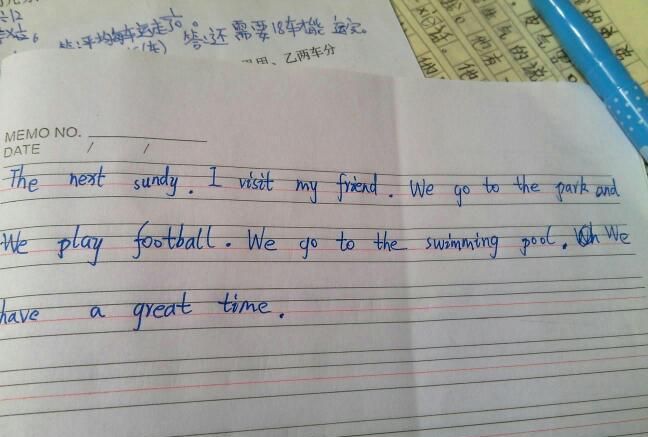 ÷12
答:平均每车运走1/30。 答:还需要18车才能运完。
甲、乙两车分
MEMO NO.
DATE / /
The next sundy. I visit my friend. We go to the park and
We play football. We go to the swimming pool. We
have a great time.